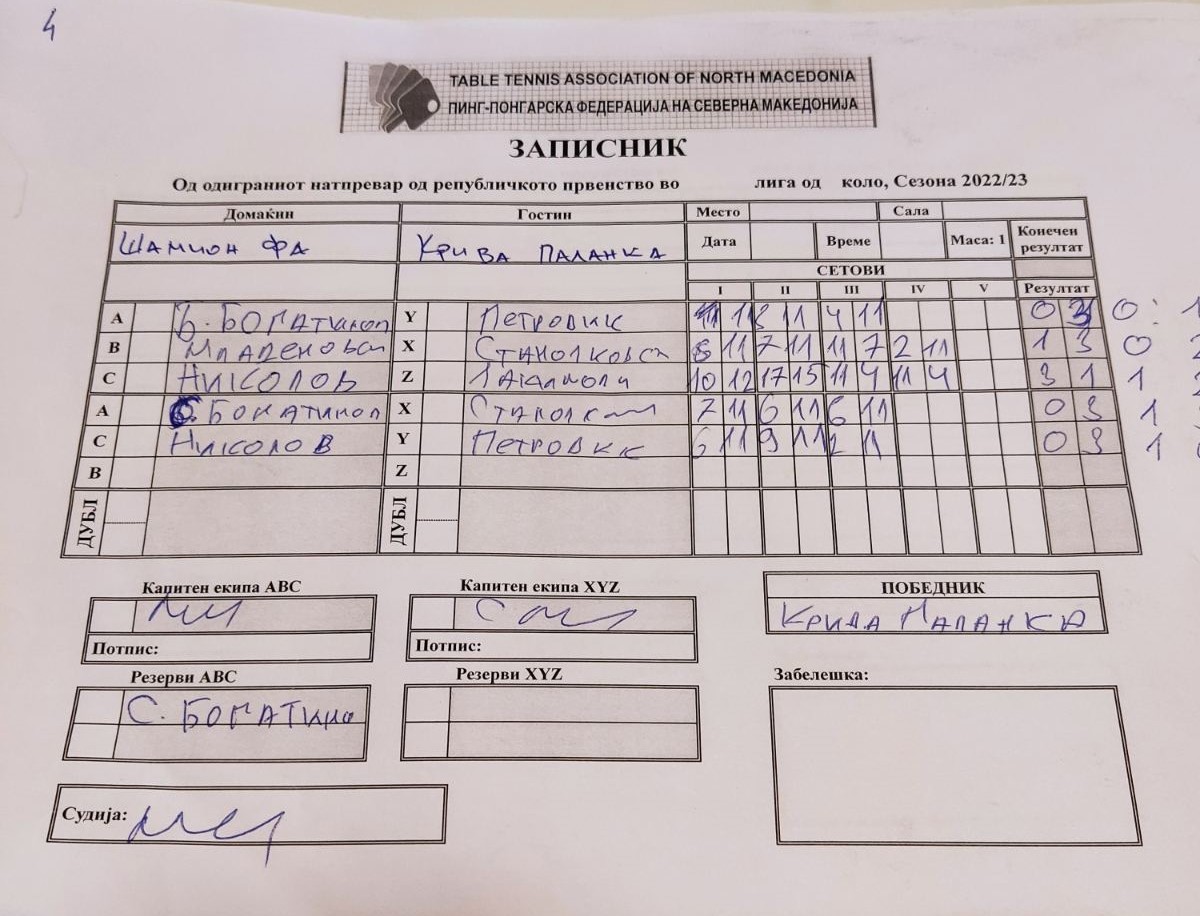 4
TABLE TENNIS ASSOCIATION OF NORTH MACEDONIA
ПИНГ-ПОНГАРСКА ФЕДЕРАЦИЈА НА СЕВЕРНА МАКЕДОНИЈА
ЗАПИСНИК
Од одиграниот натпревар од републичкото првенство во лига од коло, Сезона 2022/23
Домаќин Гостин Место Сала
ШАМПИОН ФА КРИВА ПАЛАНКА Дата Време Маса: 1 Конечен резултат
СЕТОВИ
I II III IV V Резултат
A Б. БОГАТИНОВ Y ПЕТРОВИК 11 8 11 4 11 0 3 0:
B МЛАДЕНОВСКИ X СТАНОЈКОВСКИ 11 7 11 11 7 2 11 1 3 0
C НИКОЛОВ Z 10 12 17 15 11 4 11 4 3 1 1
A С. БОГАТИНОВ X 7 11 6 11 6 11 0 3 1
C НИКОЛОВ Y ПЕТРОВИК 6 11 9 11 2 11 0 3 1
B Z
ДУБЛ ДУБЛ
Капитен екипа ABC Капитен екипа XYZ ПОБЕДНИК
КРИВА ПАЛАНКА
Потпис: Потпис:
Резерви ABC Резерви XYZ Забелешка:
С. БОГАТИНО
Судија: